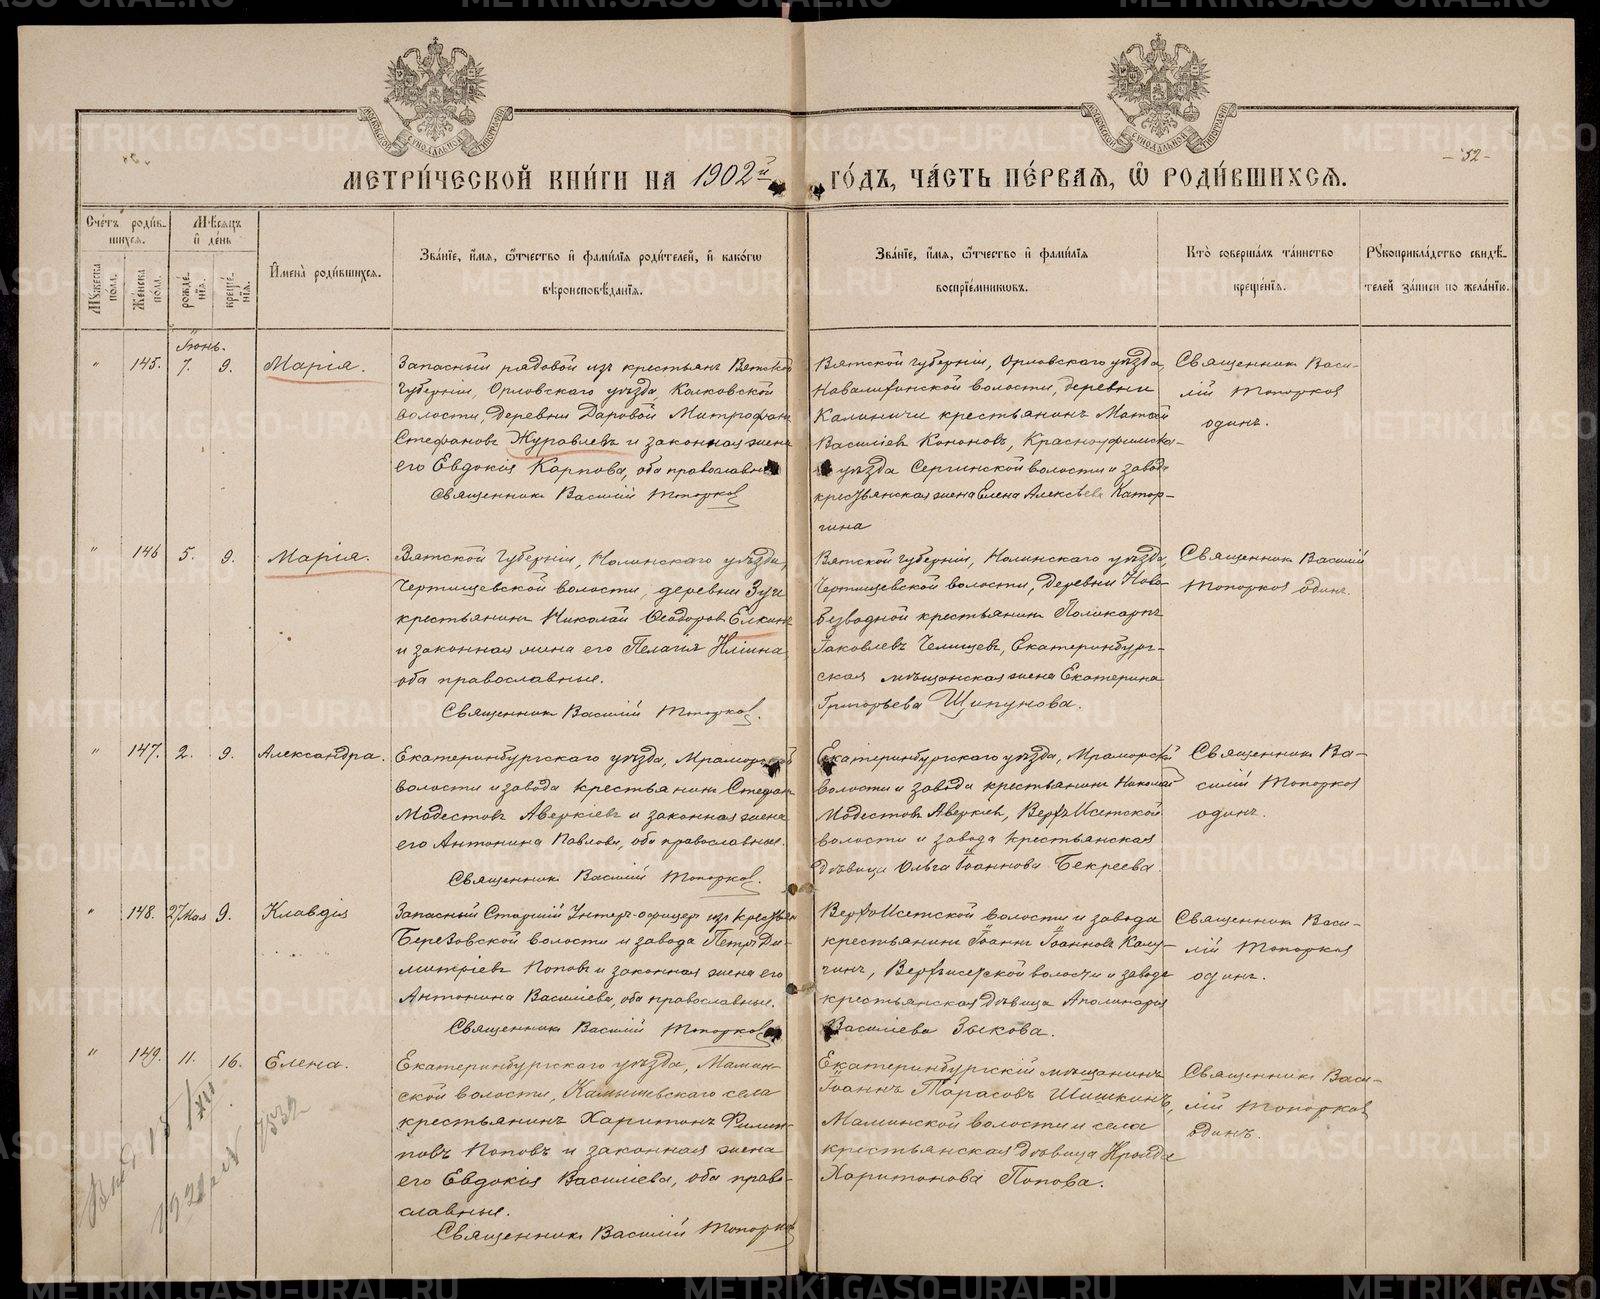 МЕТРИ́ЧЕСКОЙ КНИ́ГИ НА 1902й
ГО́ДЪ, ЧА́СТЬ ПЕ́РВАЯ, Ѡ҆ РОДИ́ВШИХСЯ.
52
Сче́тъ роди́в-
шихся.
Мѣ́сяцъ
и҆ де́нь
Мꙋ́жеска
по́ла.
Же́нска
по́ла.
рожде́-
нїя.
креще́-
нїя.
И҆мена̀ роди́вшихся.
Зва́нїе, и҆́мя, ѻ҆́тчество и҆ фами́лїя роди́телей, и҆ како́гѡ
вѣроисповѣ́данїя.
Зва́нїе, и҆́мя, ѻ҆́тчество и҆ фами́лїя
воспрїе́мникѡвъ.
Кто̀ соверша́лъ та́инство
креще́нїя.
Рꙋкоприкла́дство свидѣ́-
телей за́писи по жела́нїю.
Іюнь.
" 145. 7. 9. Марія.
Запасный рядовой изъ крестьянъ Вятской
губерніи, Орловскаго уѣзда, Колковской
волости, деревни Даровой Митрофанъ
Стефановъ Журавлевъ и законная жена
его Евдокія Карпова, оба православные
Священникъ Василій Топорковъ
Вятской губерніи, Орловскаго уѣзда,
волости, деревни
Калиничи крестьянинъ Матвѣй
Василіевъ Кононовъ, Красноуфимска-
уѣзда Сергинской волости и завода
крестьянская жена Елена Алексѣева Катор-
гина
Священникъ Васи-
лій Топорковъ
одинъ.
" 146 5. 9. Марія.
Вятской губерніи, Нолинскаго уѣзда,
Чертищевской волости, деревни Зуи
крестьянинъ Николай Ѳеодоровъ Елкинъ
и законная жена его Пелагія Иліина,
оба православные.
Священникъ Василій Топорковъ.
Вятской губерніи, Нолинскаго уѣзда,
Чертищевской волости, деревни Ново-
безводной крестьянинъ Поликарпъ
Іаковлевъ Челищевъ, Екатеринбург-
ская мѣщанская жена Екатерина
Григорьева Щипунова.
Священникъ Василій
Топорковъ одинъ.
" 147. 2. 9. Александра.
Екатеринбургскаго уѣзда, Мраморской
волости и завода крестьянинъ Стефанъ
Модестовъ Аверкіевъ и законная жена
его Антонина Павлова, оба православные.
Священникъ Василій Топорковъ.
Екатеринбургскаго уѣзда, Мраморской
волости и завода крестьянинъ Николай
Модестовъ Аверкіевъ, Верхъ Исетской
волости и завода крестьянская
дѣвица Ольга Іоаннова Бекреева.
Священникъ Ва-
силій Топорковъ
одинъ.
" 148. 27 Мая 9. Клавдія
Запасный Старшій Унтеръ-офицеръ изъ крестьянъ
Березовской волости и завода Петръ Ди-
митріевъ Поповъ и законная жена его
Антонина Василіева, оба православные.
Священникъ Василій Топорковъ
Верхъ Исетской волости и завода
крестьянинъ Іоаннъ Іоанновъ
Верхъисетской волости и завода
крестьянская дѣвица Аполинарія
Василіева Зыкова.
Священникъ Васи-
лій Топорковъ
одинъ.
" 149. 11. 16. Елена.
Екатеринбургскаго уѣзда, Мамин-
ской волости, Камышевскаго села
крестьянинъ Харитонъ Филип-
повъ Поповъ и законная жена
его Евдокія Василіева, оба право-
славные.
Священникъ Василій Топорковъ
Екатеринбургскій мѣщанинъ
Іоаннъ Тарасовъ Шишкинъ,
Маминской волости и села
крестьянская дѣвица Ираида
Харитонова Попова.
Священникъ Васи-
лій Топорковъ
одинъ.
METRIKI.GASO-URAL.RU